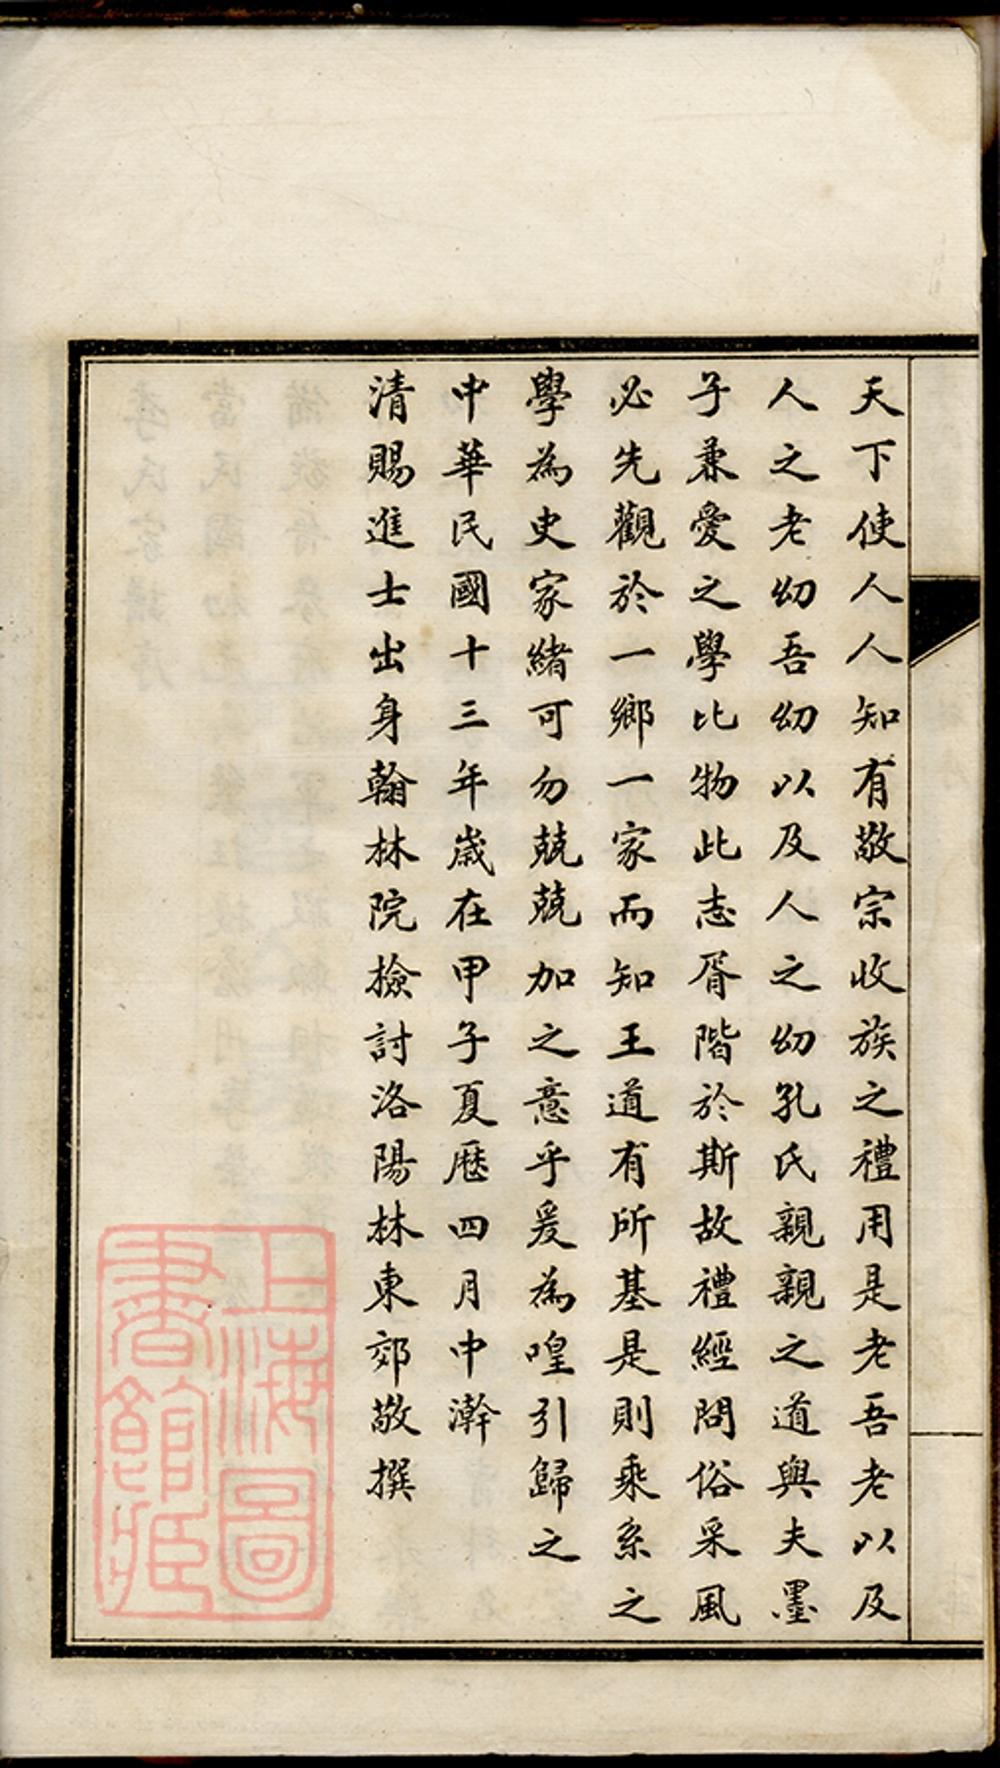 天下使人人知有敬宗收族之禮用是老吾老以及
人之老幼吾幼以及人之幼孔氏親親之道與夫墨
子兼愛之學比物此志胥階於斯故禮經問俗采風
必先觀於一鄉一家而知王道有所基是則乘系之
學為史家緒可勿兢兢加之意乎爰為喤引歸之
中華民國十三年歲在甲子夏曆四月中澣
清賜進士出身翰林院檢討洛陽林東郊敬撰
上海圖
書館藏